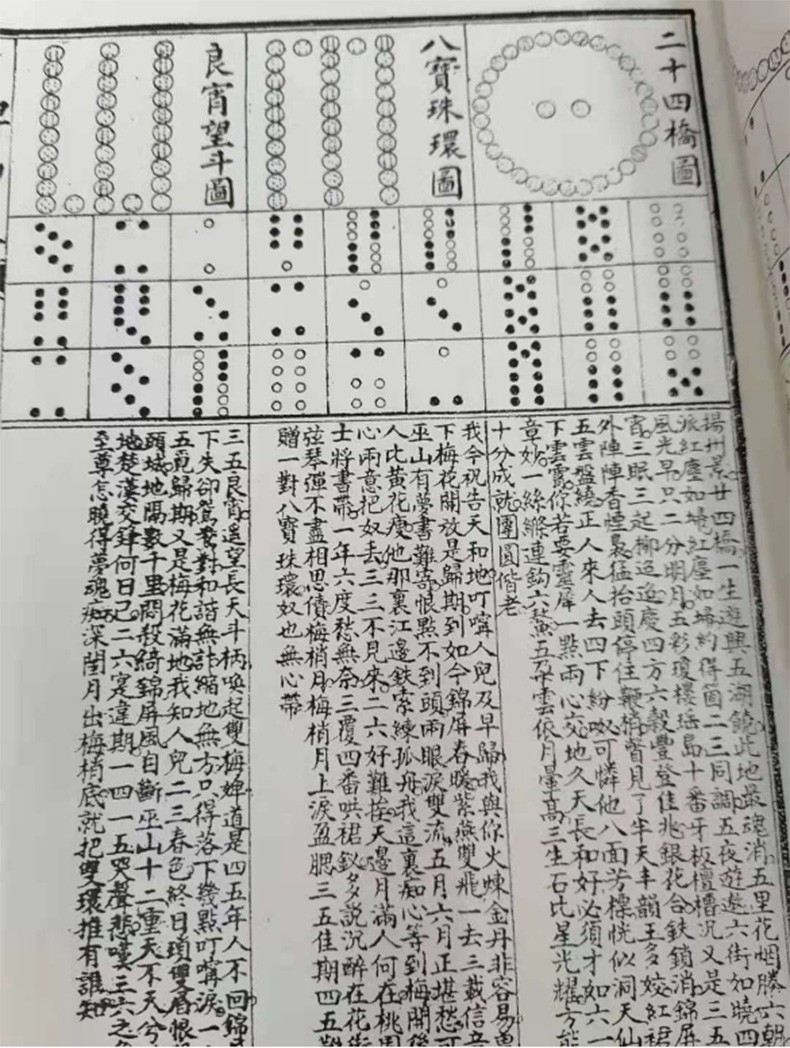 二十四橋圖
八寶珠環圖
良宵望斗圖
揚州景廿四橋一生遊興五湖饒此地最魂消五里花烟騰六朝
派紅塵如境紅塵如埽約得箇二三同調五夜遊遨六街如曉四
風光早只二分明月五彩瓊樓瑤島十番牙板檀槽沉又是三五
宵三眠三起柳迢遙慶四方六穀豐登佳兆銀花合鉄鎖消錦屏
外陣陣香煙裊猛抬頭停住鞭梢瞥見了半天丰韻王多姣紅裙
五雲盤繞正人來人去四下紛呶可憐他八面芳標恍似洞天仙
下雲霄你若要靈犀一點兩心交地久天長和好必須才如六一
章妙一絲縧連鈎六鰲五朶雲依月暈高三生石比星光耀方能
十分成就團圓偕老
我今祝告天和地叮嚀人兒及早歸我與你火煉金丹非容易
下梅花開放是歸期到如今錦屏春暖紫燕雙飛一去三載信音
巫山有夢書難寄恨點不到頭兩眼淚雙流五月六月正堪愁可
人比黃花瘦他那裏江邊鉄索練孤舟我這裏痴心等到梅開後
心兩意把奴丟三三不見來二六好難捱天邊月滿人何在桃園
士將書帶一年六度愁無奈三覆四番哄裙釵多說沉醉在花街
弦琴彈不盡相思債梅梢月梅梢月上淚盈腮三五佳期四五難
贈一對八寶珠環奴也無心帶
三五良宵遥望長天斗柄喚起雙梅婢道是四五年人不回錦
下失卻鴛鴦對和諧無計縮地無方只得落下幾點叮嚀淚一
五覓歸期又是梅花滿地我知人兒二三春色終日瑣雙眉恨
頭城地隔數千里悶殺綺錦屏風自斷巫山十二重天不天兮
地楚漢交鋒何日已二六定違期一四一五哭聲悲嘆三六之
至尊怎曉得夢魂痴深閨月出梅梢底就把雙環推有誰知